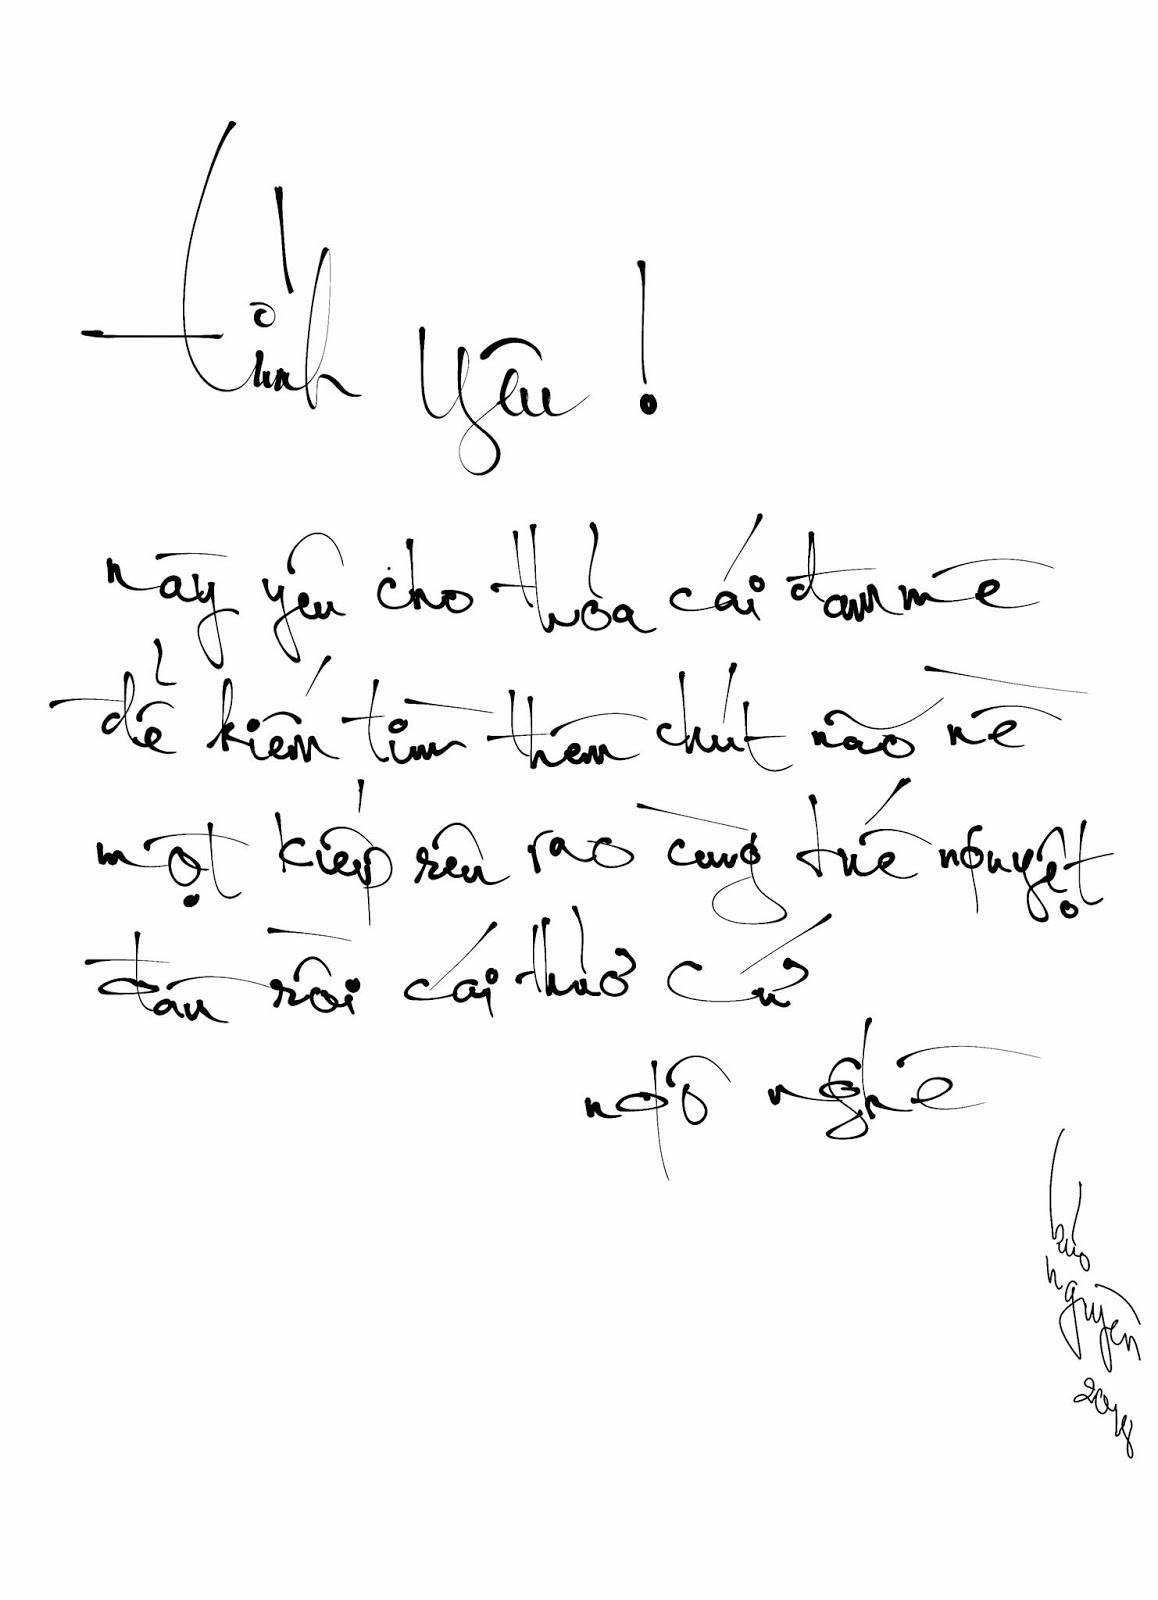 tỉnh yêu!
này yêu cho thỏa cái đam mê
để kiếm tìm thêm chút não nề
một kiếp rêu rao cùng tuế nguyệt
đàn rồi cái thuở cứ
ngô nghê
bảo nguyên
2018